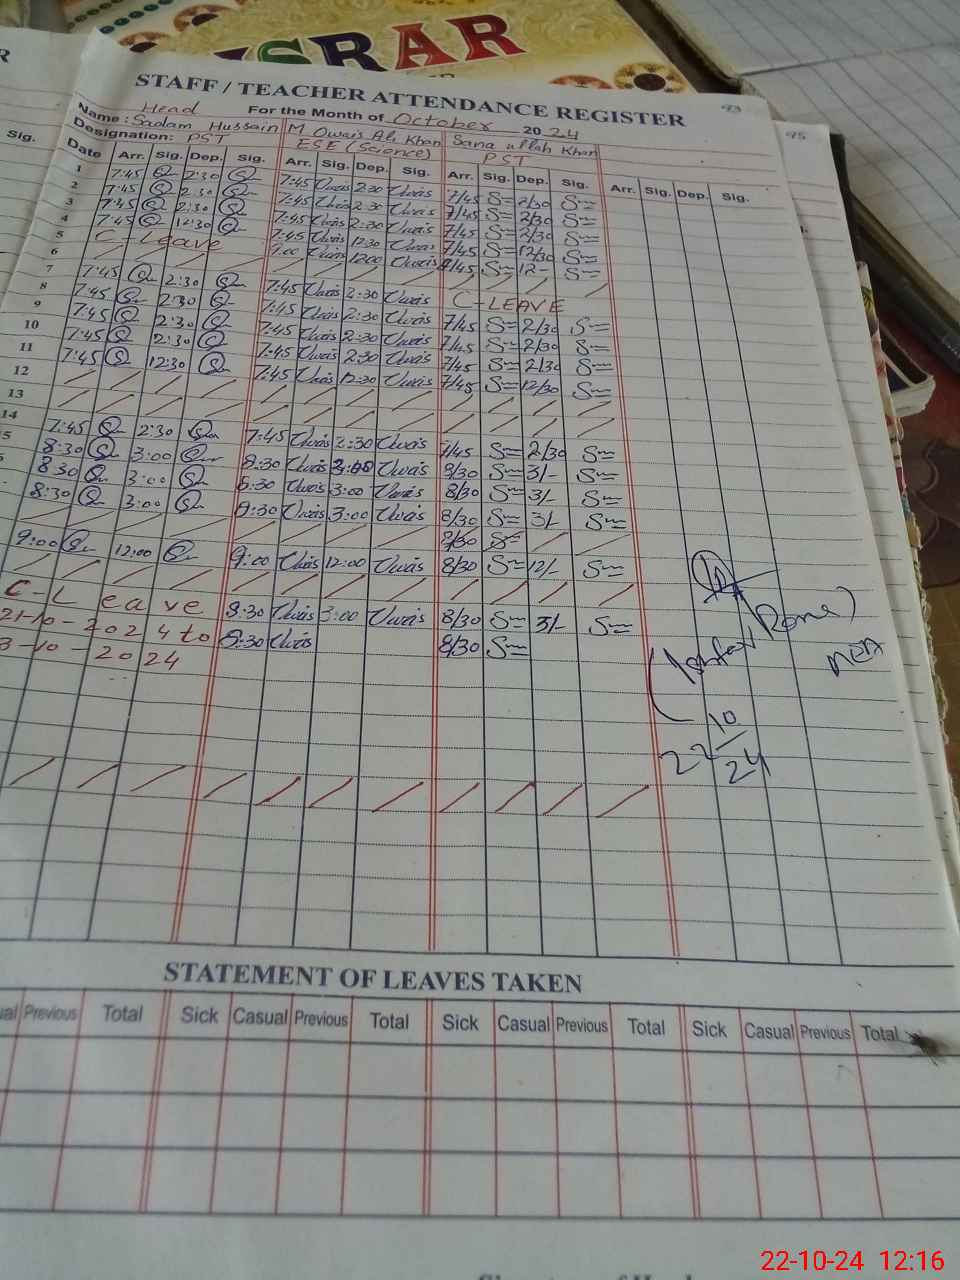 SRAR
STAFF / TEACHER ATTENDANCE REGISTER
93
95
R
Head
For the Month of October 2024
Name: Sadam Hussain M Owais Ali Khan Sana ullah Khan
Designation: PST ESE (Science) PST
Sig.
Date Arr. Sig. Dep. Sig. Arr. Sig. Dep. Sig. Arr. Sig. Dep. Sig. Arr. Sig. Dep. Sig.
1 7:45 2:30 7:45 Owais 2:30 Owais 7/45 2/30
2 7:45 2:30 7:45 Owais 2:30 Owais 7/45 2/30
3 7:45 2:30 7:45 Owais 2:30 Owais 7/45 2/30
4 7:45 12:30 7:45 Owais 12:30 Owais 7/45 12/30
5 C-Leave 7:00 Owais 12:00 Owais 12-
6
7 7:45 2:30 7:45 Owais 2:30 Owais C-LEAVE
8 7:45 2:30 7:45 Owais 2:30 Owais 7/45 2/30
9 7:45 2:30 7:45 Owais 2:30 Owais 7/45 2/30
10 7:45 2:30 7:45 Owais 2:30 Owais 7/45 2/30
11 7:45 12:30 7:45 Owais 12:30 Owais 7/45 12/30
12
13
14 7:45 2:30 7:45 Owais 2:30 Owais 7/45 2/30
8:30 3:00 8:30 Owais 3:00 Owais 8/30 3/-
8:30 3:00 8:30 Owais 3:00 Owais 8/30 3/-
8:30 3:00 8:30 Owais 3:00 Owais 8/30 3/-
8/30
9:00 12:00 9:00 Owais 12:00 Owais 8/30 12/-
C-Leave 8:30 Owais 3:00 Owais 8/30 3/-
21-10-2024 to 8:30 Owais 8/30
3-10-2024
22 10/24
STATEMENT OF LEAVES TAKEN
ual Previous Total Sick Casual Previous Total Sick Casual Previous Total Sick Casual Previous Total
22-10-24 12:16